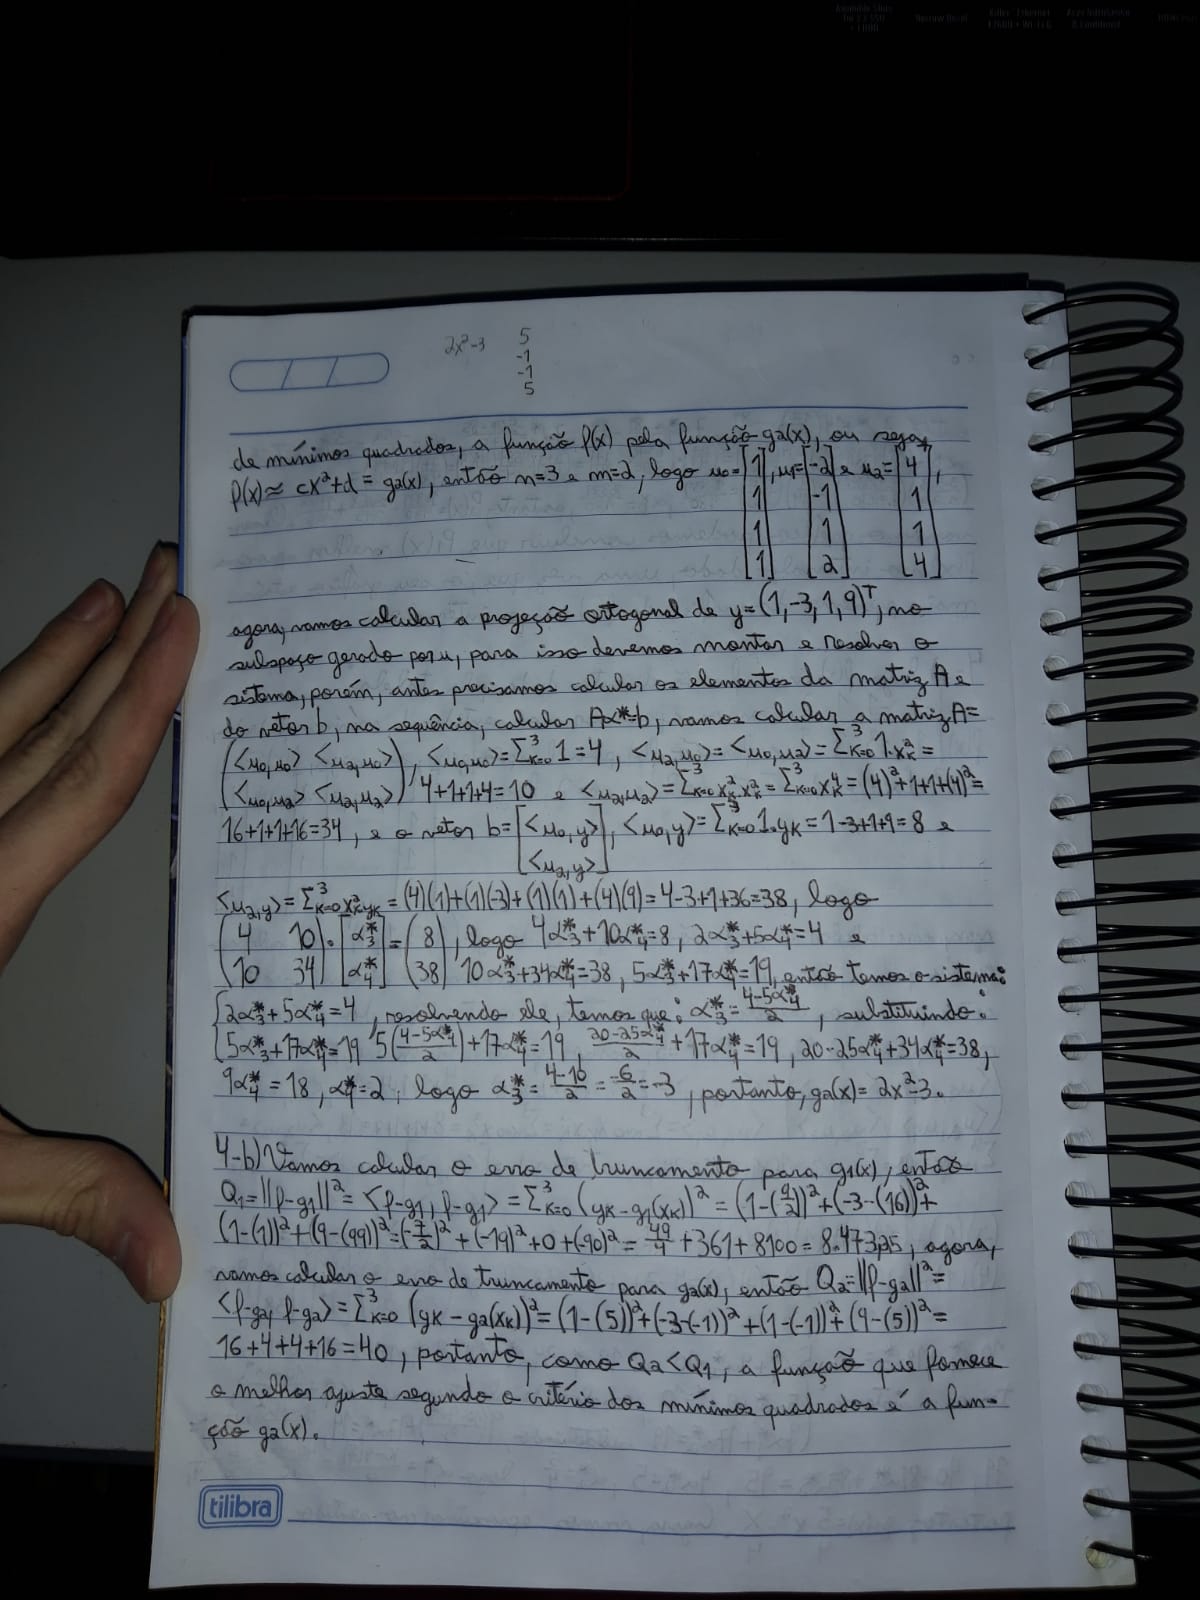 2x²-3 5
-1
-1
5
de mínimos quadrados, a função f(x) pela função g2(x), ou seja,
f(x)≈ cx²+d = g2(x), então n=3 e m=2, logo u0=[1 1 1 1], u1=[-2 -1 1 2] e u2=[4 1 1 4],
agora, vamos calcular a projeção ortogonal de y=(1,-3,1,9)ᵀ, no
subspaço gerado por u, para isso devemos montar e resolver o
sistema, porém, antes precisamos calcular os elementos da matriz A e
do vetor b, na sequência, calcular Aα*=b, vamos calcular a matriz A=
(<u0,u0> <u2,u0>), <u0,u0>=Σ³k=0 1=4, <u2,u0>=<u0,u2>=Σ³k=0 1.x²k=
(<u0,u2> <u2,u2>) 4+1+1+4=10 e <u2,u2>=Σ³k=0 x²k.x²k=Σ³k=0 x⁴k=(4)²+1+1+(4)²=
16+1+1+16=34, e o vetor b=[<u0,y>], <u0,y>=Σ³k=0 1.yk=1-3+1+9=8 e
<u2,y>
<u2,y>=Σ³k=0 x²k yk=(4)(1)+(1)(-3)+(1)(1)+(4)(9)=4-3+1+36=38, logo
(4 10).[α*3]=(8), logo 4α*3+10α*4=8, 2α*3+5α*4=4 e
(10 34) [α*4] (38) 10α*3+34α*4=38, 5α*3+17α*4=19, então temos o sistema:
{2α*3+5α*4=4, resolvendo ele, temos que: α*3=(4-5α*4)/2, substituindo:
5α*3+17α*4=19 5((4-5α*4)/2)+17α*4=19, (20-25α*4)/2+17α*4=19, 20-25α*4+34α*4=38,
9α*4=18, α*4=2, logo α*3=(4-10)/2=-6/2=-3, portanto, g2(x)=2x²-3.
4-b) Vamos calcular o erro de truncamento para g1(x), então
Q1=||f-g1||²=<f-g1,f-g1>=Σ³k=0(yk-g1(xk))²=(1-(9/2))²+(-3-(16))²+
(1-(1))²+(9-(99))²=(-7/2)²+(-19)²+0+(-90)²=49/4+361+8100=8.473,25, agora,
vamos calcular o erro de truncamento para g2(x), então Q2=||f-g2||²=
<f-g2, f-g2>=Σ³k=0 (yk-g2(xk))²=(1-(5))²+(-3-(-1))²+(1-(-1))²+(9-(5))²=
16+4+4+16=40, portanto, como Q2<Q1, a função que fornece
o melhor ajuste segundo o critério dos mínimos quadrados é a fun-
ção g2(x).
tilibra